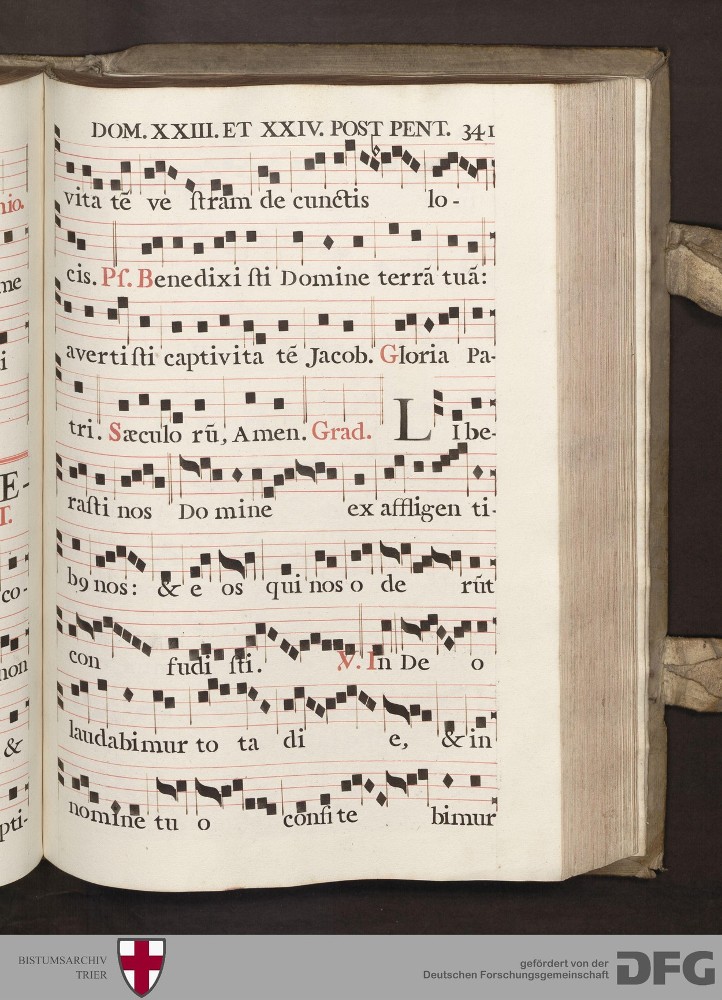 DOM. XXIII. ET XXIV. POST PENT. 341
vita tē ve ſtram de cunctis lo-
cis. Pſ. Benedixi ſti Domine terrā tuā:
avertiſti captivita tē Jacob. Gloria Pa-
tri. Sæculo rū, Amen. Grad. LIbe-
raſti nos Do mine ex affligen ti-
b9 nos: & e os qui nos o de rūt
con fudi ſti. V. In De o
laudabimur to ta di e, & in
nomine tu o confite bimur
nio.
me
i
E-
T.
co-
non
&
pti-
BISTUMSARCHIV
TRIER
gefördert von der
Deutschen Forschungsgemeinschaft
DFG